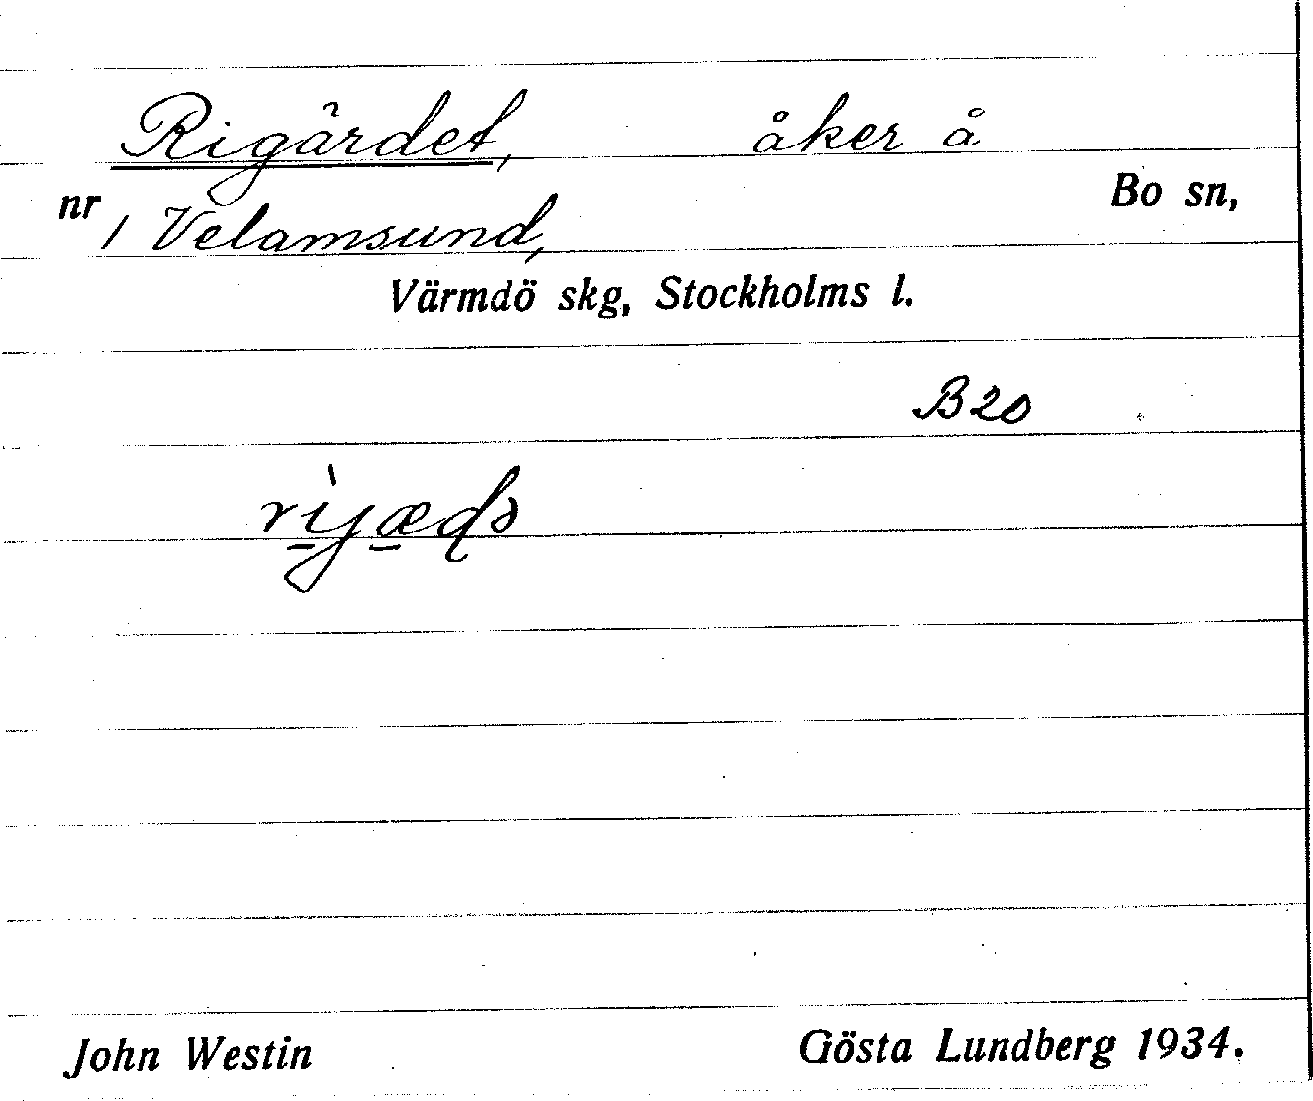 Rigärdet, åker å
nr 1 Velamsund, Bo sn,
Värmdö skg, Stockholms l.
B20
John Westin Gösta Lundberg 1934.